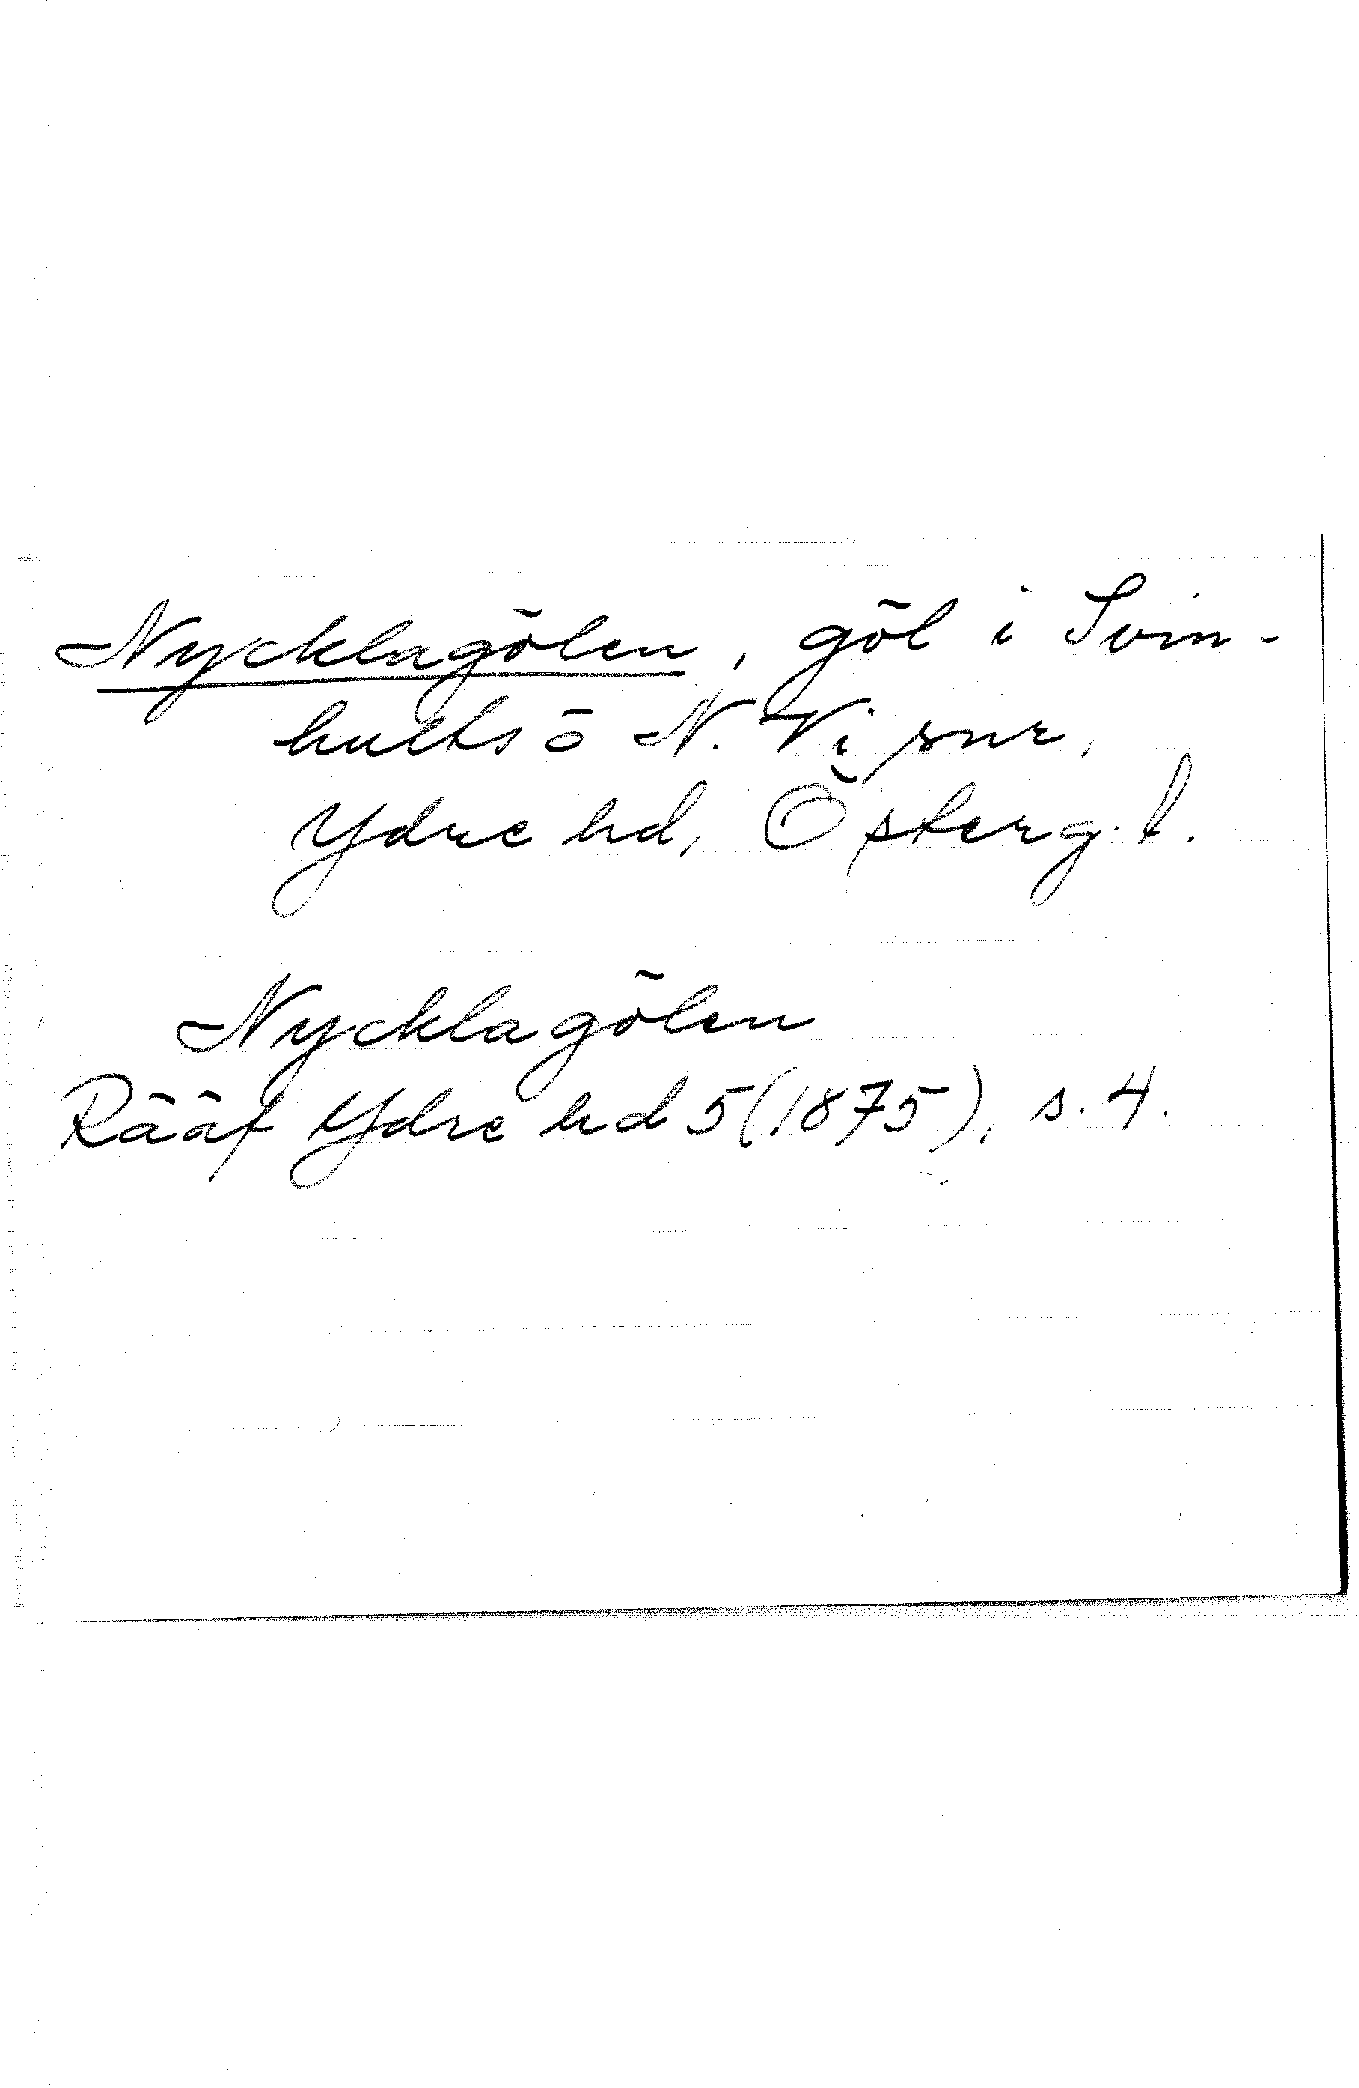 Nycklagölen, göl i Svin-
hults ö N. Vi snr,
Ydre hd, Österg. l.
Nycklagölen
Rääf Ydre hd 5 (1875), s. 4.